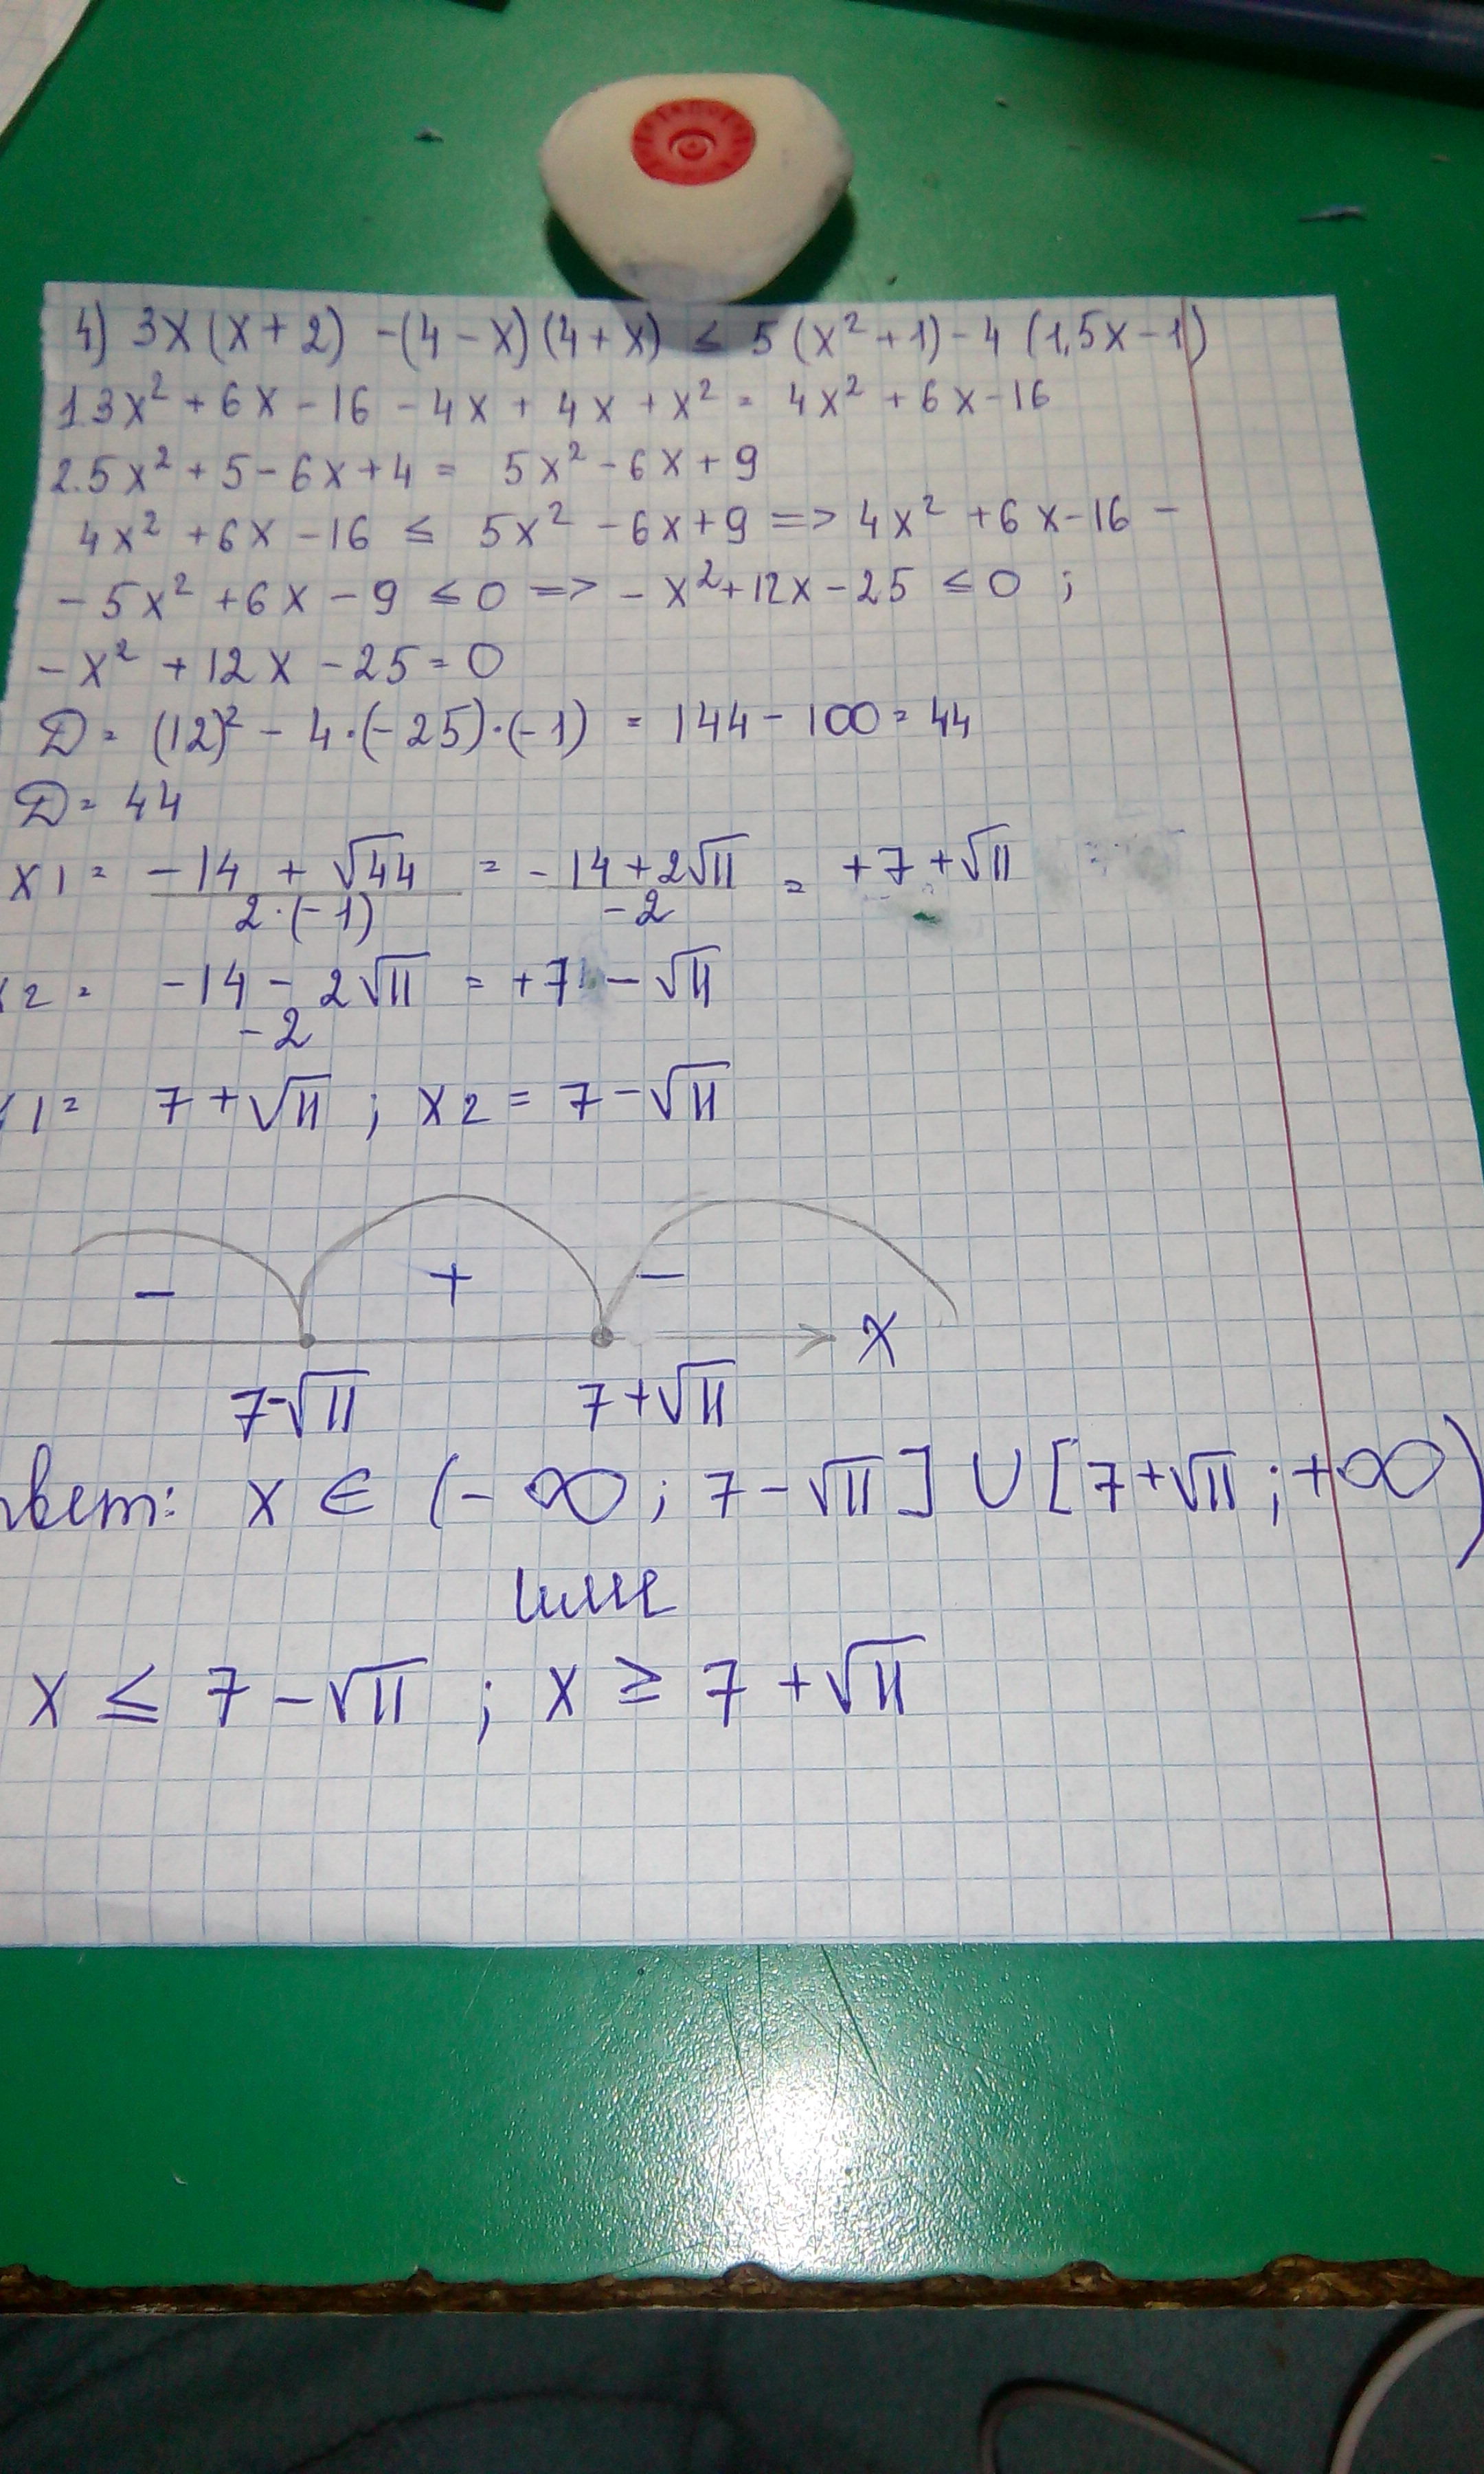 4) 3x(x+2) -(4-x)(4+x) ≤ 5(x²+1)-4(1,5x-1)
1.3x²+6x-16-4x+4x+x² = 4x²+6x-16
2.5x²+5-6x+4 = 5x²-6x+9
4x²+6x-16 ≤ 5x²-6x+9 => 4x²+6x-16 -
-5x²+6x-9 ≤ 0 => -x²+12x-25 ≤ 0 ;
-x²+12x-25=0
D = (12)²-4·(-25)·(-1) = 144-100=44
D=44
x1 = (-14+√44)/(2·(-1)) = (-14+2√11)/(-2) = +7+√11
x2 = (-14-2√11)/(-2) = +7-√11
x1= 7+√11 ; x2 = 7-√11
- + - x
7-√11 7+√11
твет: x ∈ (-∞; 7-√11] ∪ [7+√11; +∞)
или
x ≤ 7-√11 ; x ≥ 7+√11